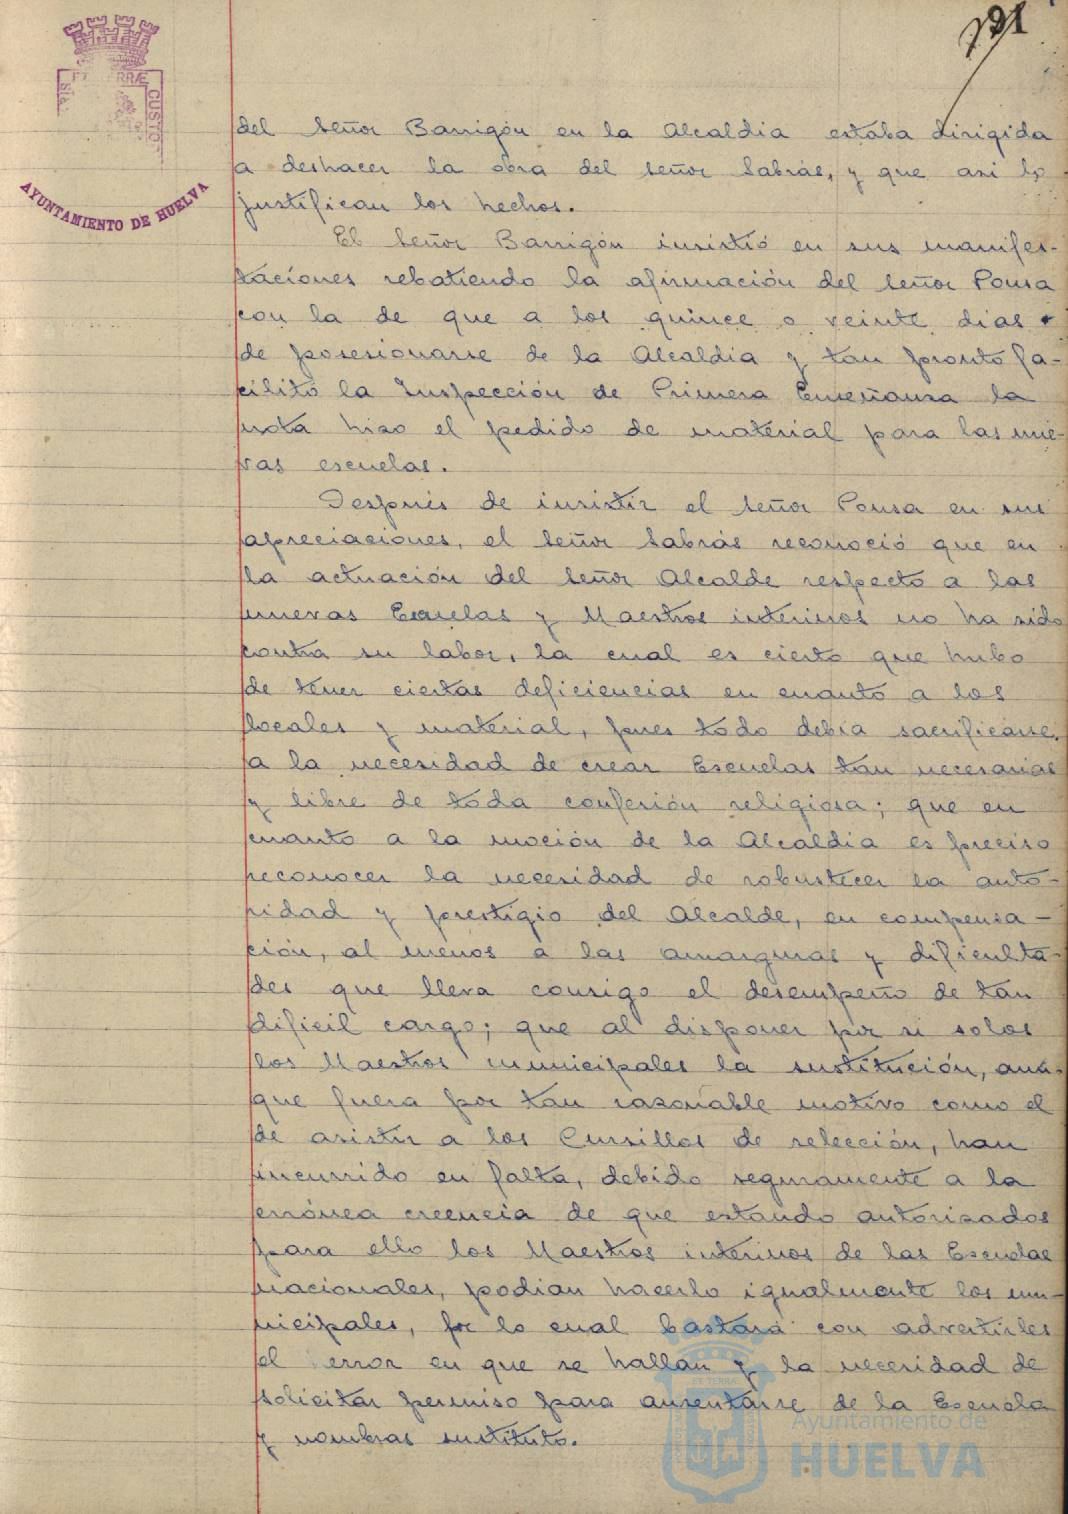 191
AYUNTAMIENTO DE HUELVA
del Señor Barrigón en la Alcaldia estaba dirigida
a deshacer la obra del señor Sabrás, y que asi lo
justifican los hechos.
El Señor Barrigón insistió en sus manifes-
taciones rebatiendo la afirmación del señor Ponsa
con la de que a los quince o veinte dias
de posesionarse de la Alcaldia y tan pronto fa-
cilitó la Inspección de Primera Enseñanza la
nota hizo el pedido de material para las nue-
vas escuelas.
Después de insistir el señor Ponsa en sus
apreciaciones, el señor Sabrás reconoció que en
la actuación del señor Alcalde respecto a las
nuevas Escuelas y Maestros interinos no ha sido
contra su labor, la cual es cierto que hubo
de tener ciertas deficiencias en cuanto a los
locales y material, pues todo debia sacrificarse
a la necesidad de crear Escuelas tan necesarias
y libre de toda confesión religiosa; que en
cuanto a la moción de la Alcaldia es preciso
reconocer la necesidad de robustecer la auto-
ridad y prestigio del Alcalde, en compensa-
ción, al menos a las amarguras y dificulta-
des que lleva consigo el desempeño de tan
dificil cargo; que al disponer por si solos
los Maestros municipales la sustitución, aun-
que fuera por tan razonable motivo como el
de asistir a los Cursillos de selección, han
incurrido en falta, debido seguramente a la
errónea creencia de que estando autorizados
para ello los Maestros interinos de las Escuelas
nacionales, podian hacerlo igualmente los mu-
nicipales, por lo cual bastará con advertirles
el error en que se hallan y la necesidad de
solicitar permiso para ausentarse de la Escuela
y nombrar sustituto.
Ayuntamiento de
HUELVA